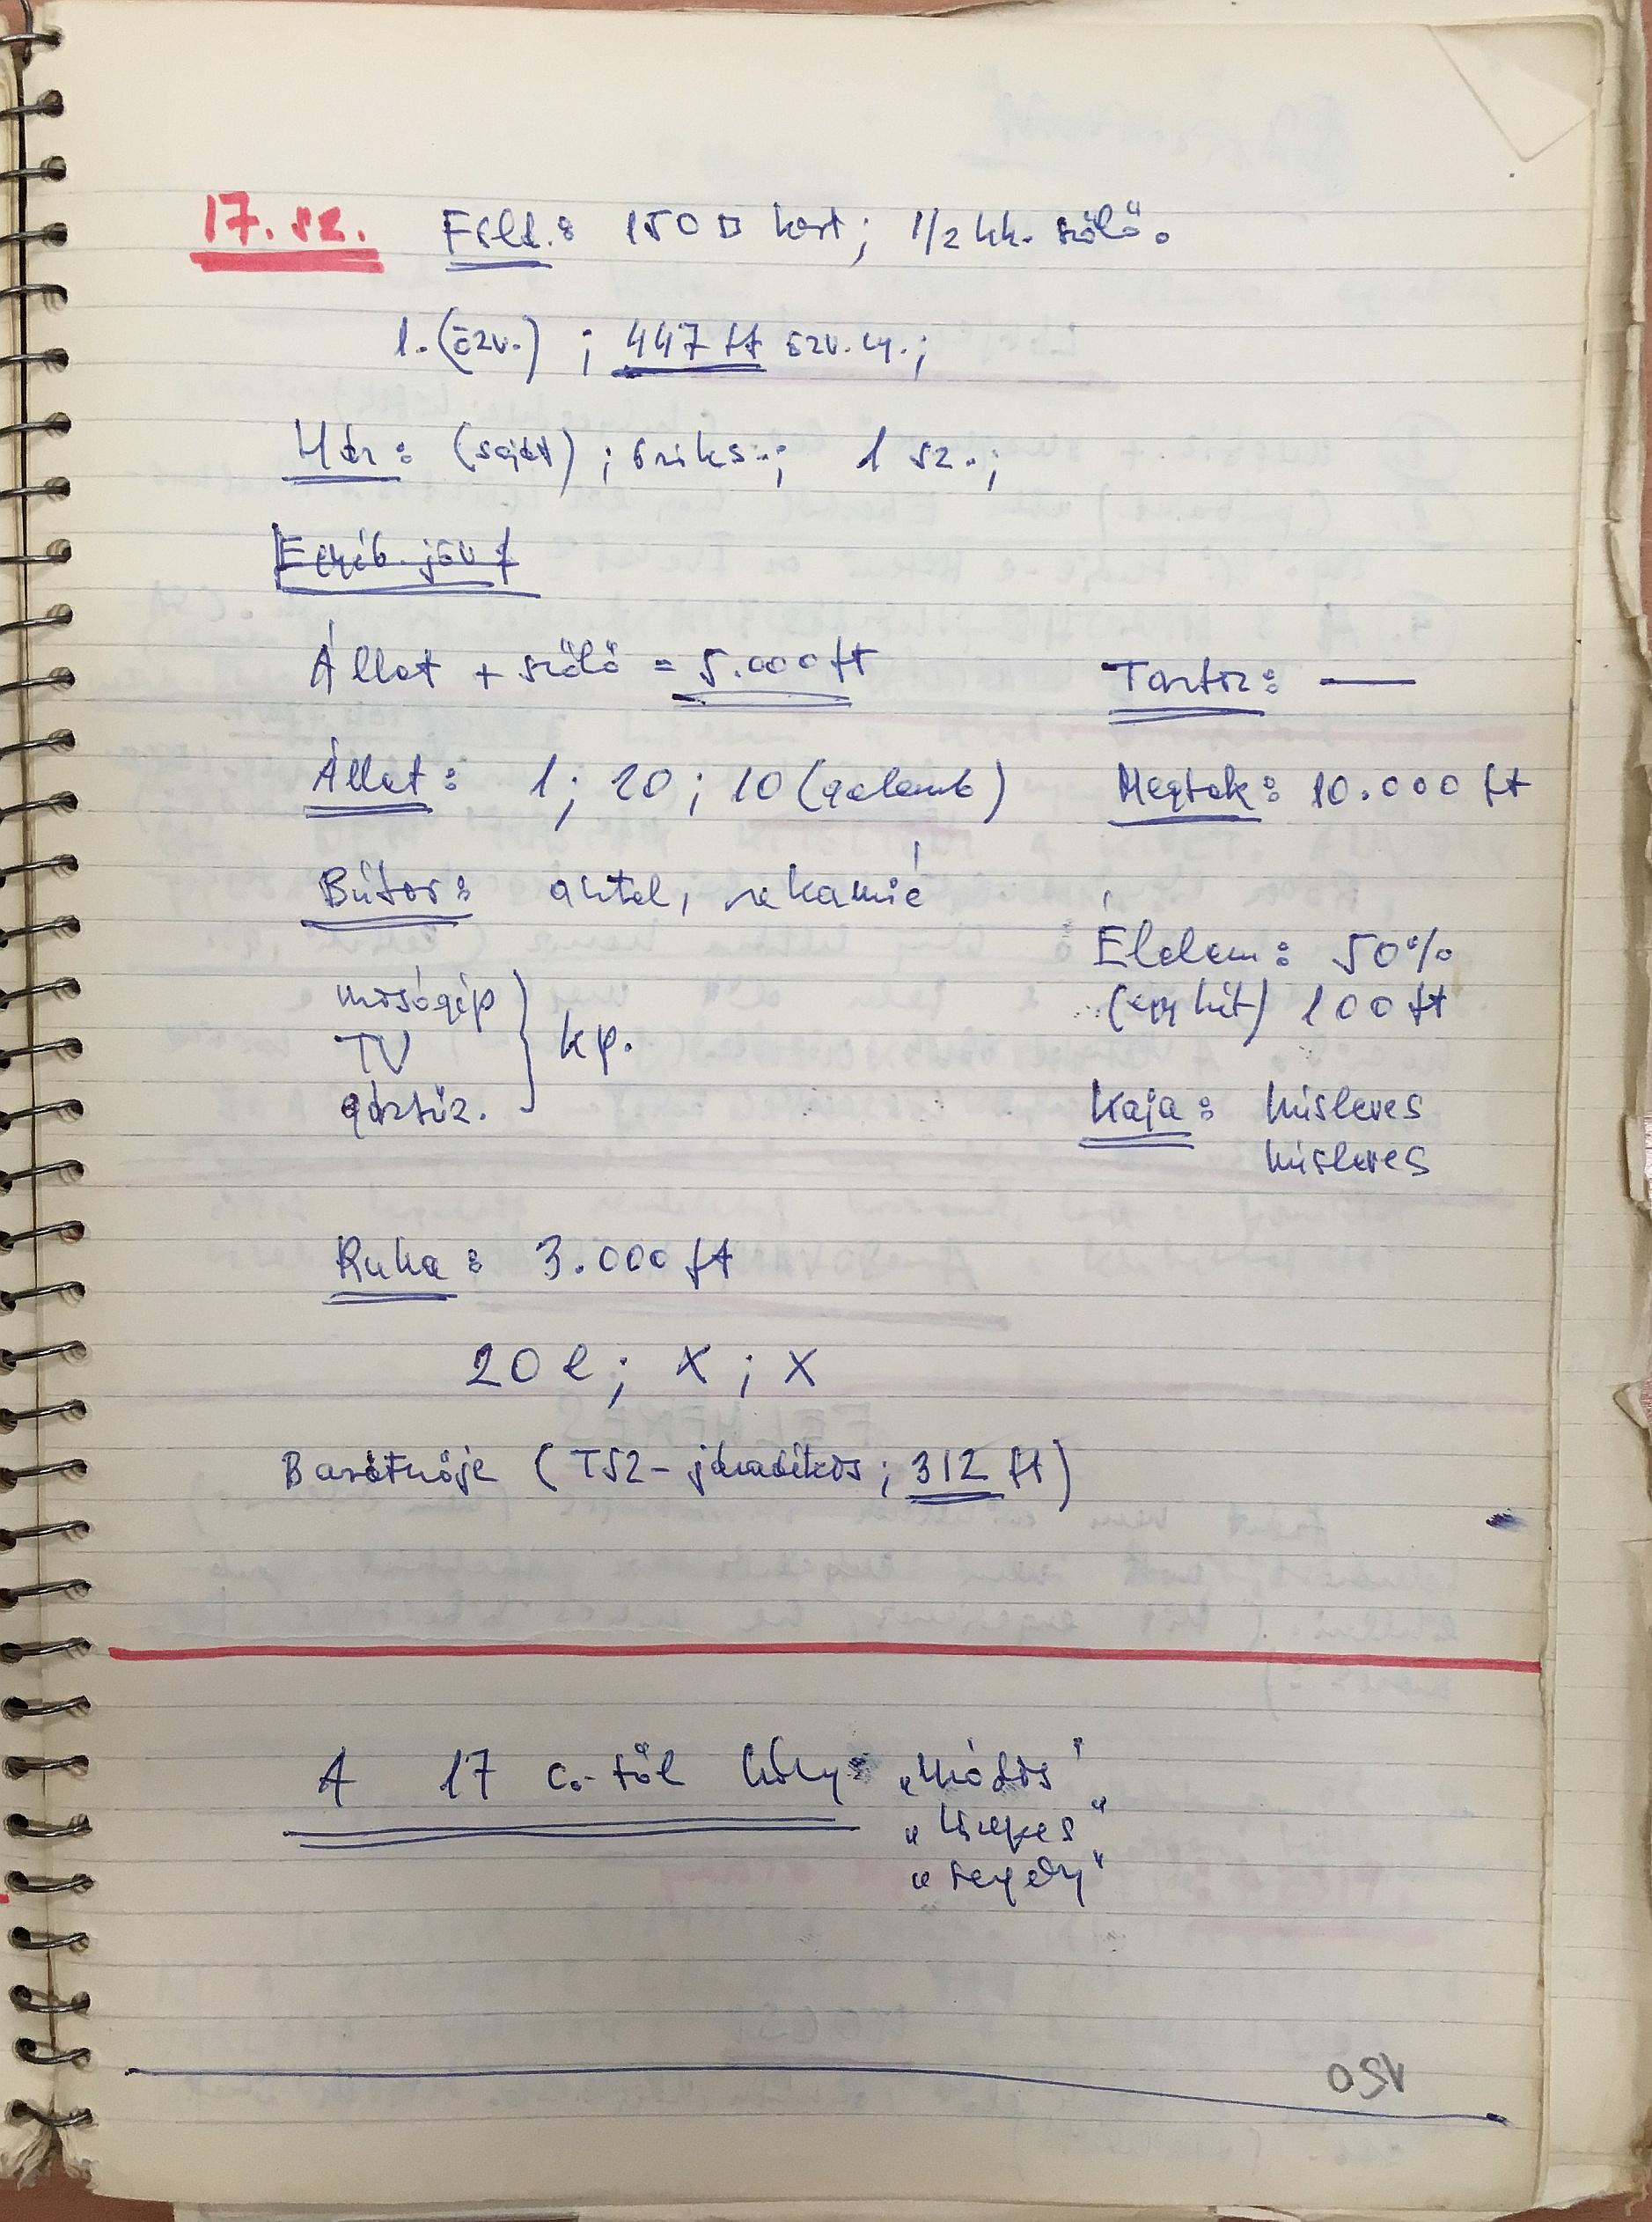 17. sz. Föld.: 150 □ kert; 1/2 kh. szőlő.
1. (özv.) ; 447 ft özv. ny.;
Ház: (saját) ; öröks.; 1 sz.;
Egyéb. jöv.
Állat + szőlő = 5.000 ft
Tartoz: —
Állat: 1; 20; 10 (galamb)
Megtak: 10.000 ft
Bútor: asztal, rekamié
Élelem: 50%
(egy hét) 100 ft
mosógép
TV
gáztűz.
kp.
Kaja: húsleves
húsleves
Ruha: 3.000 ft
20 l; x; x
Barátnője (TSZ-járadékos; 312 ft)
A 17 c.-től : „Módos"
„közepes"
„szegény"
150